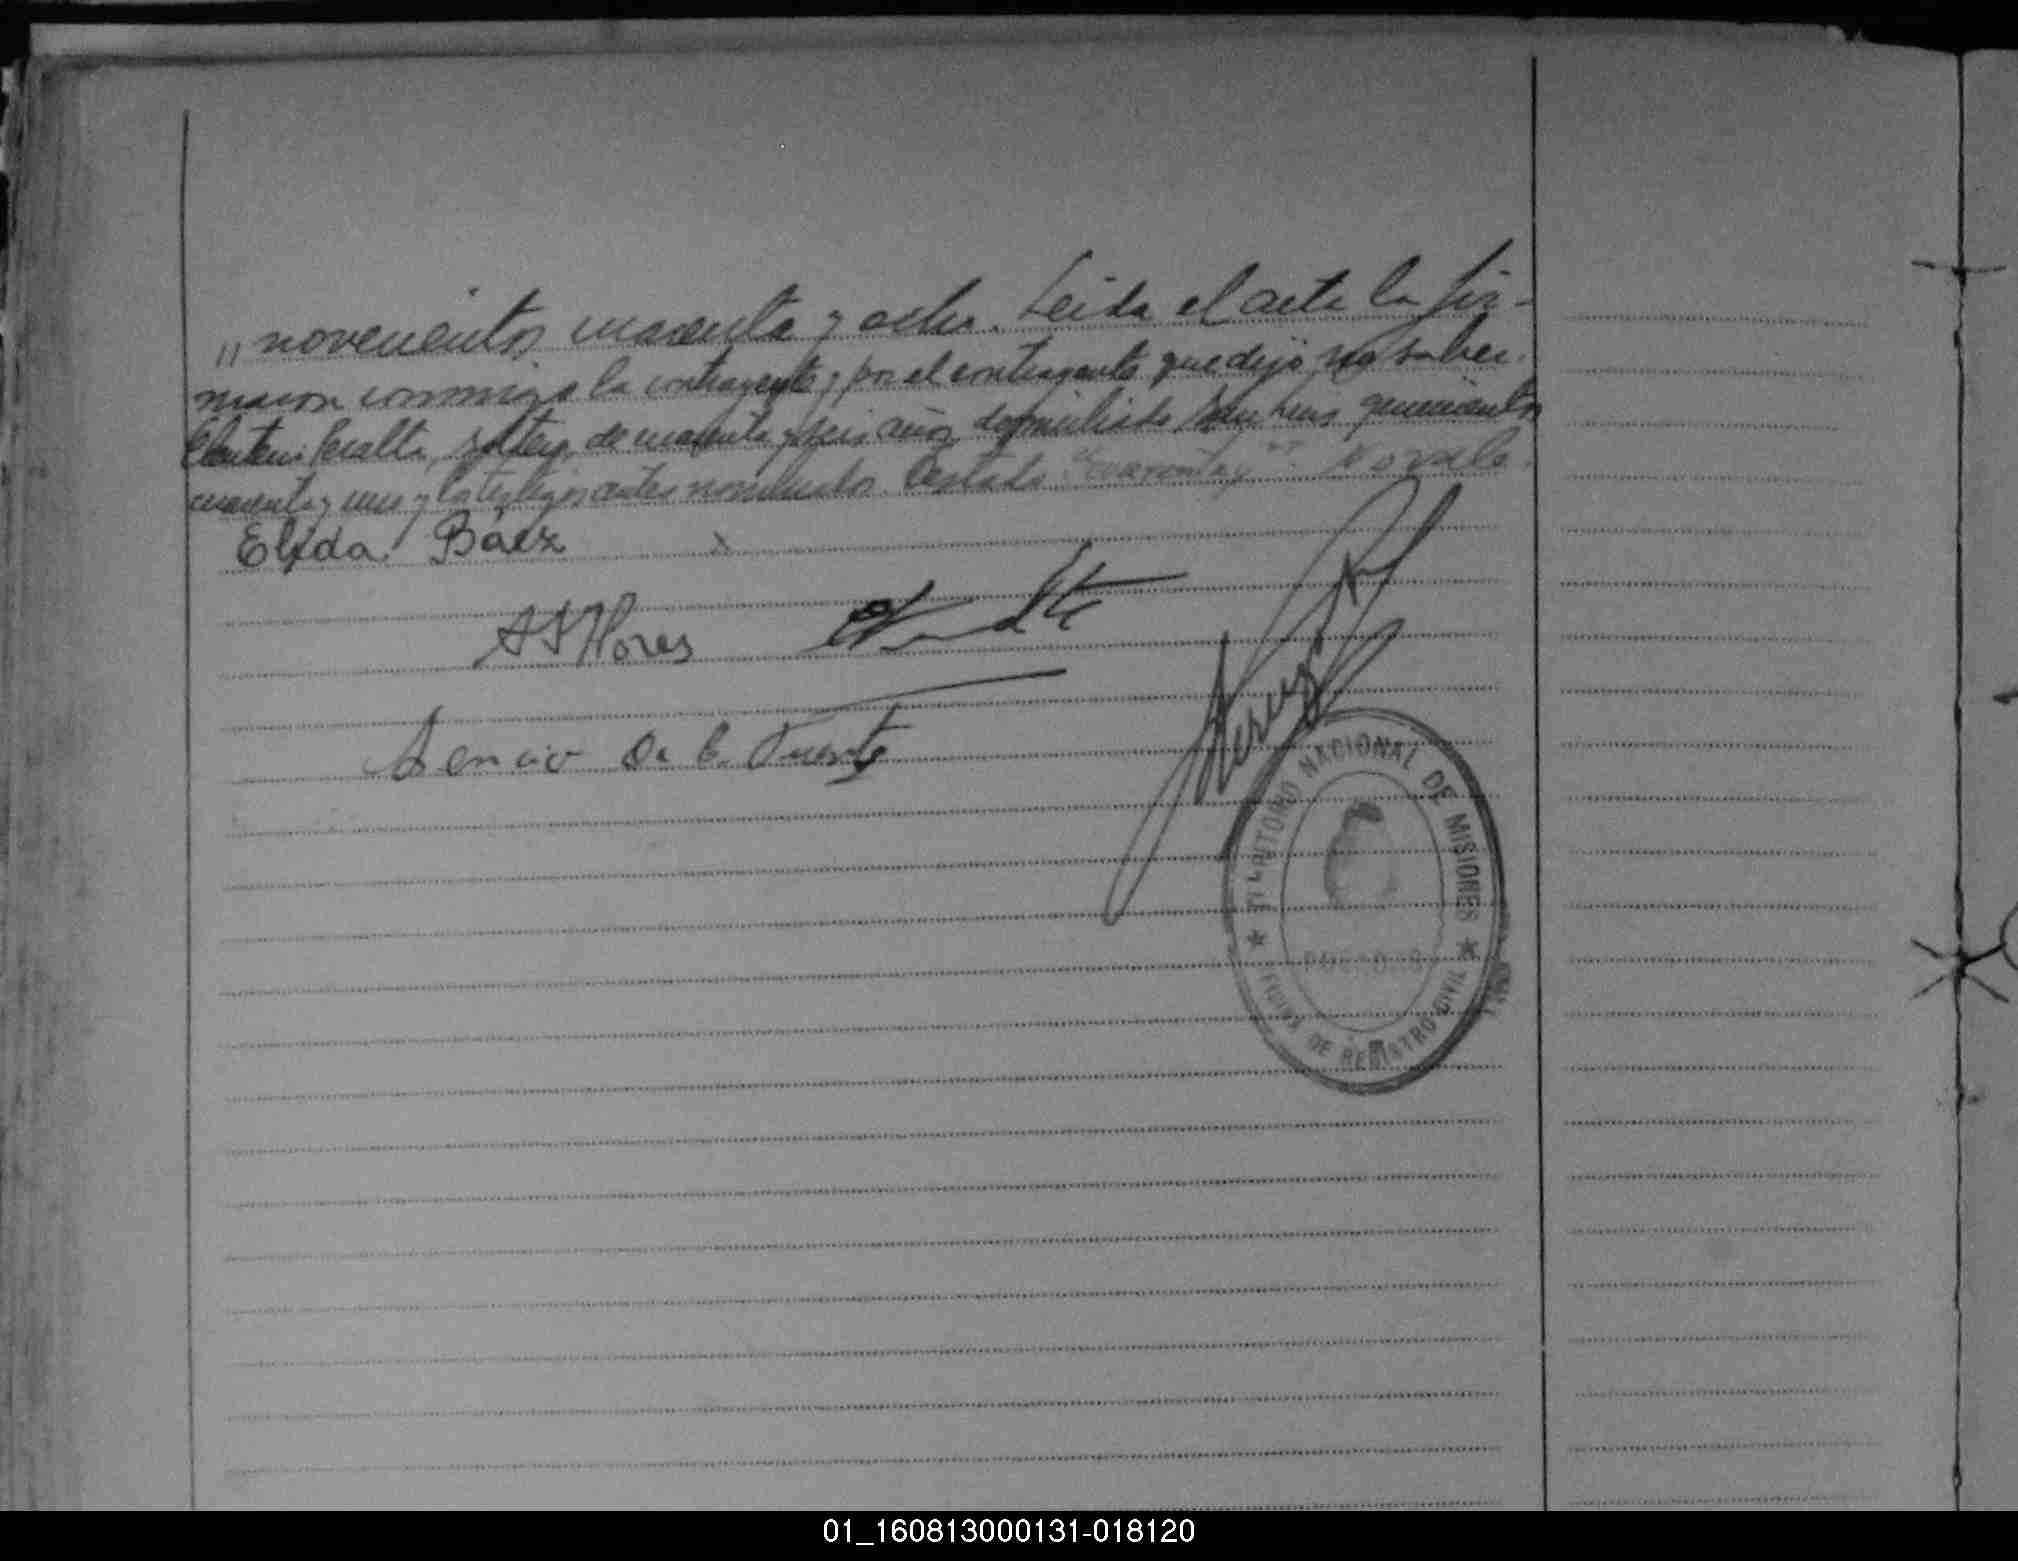 „ novecientos cuarenta y ocho. Leída el acta la fir-
maron conmigo la contrayente, por el contrayente que dijo no saber
Peralta, soltero, de cuarenta y seis años, domiciliado San Luis quinientos
cuarenta y uno y los testigos antes nombrados. Testado: "cuarenta y": No vale.
Elida Báez
Flores
Asencio De la Fuente
TERRITORIO NACIONAL DE MISIONES
POSADAS
OFICINA DE REGISTRO CIVIL
01_160813000131-018120